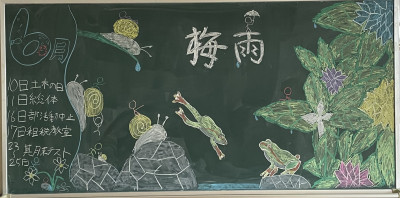 6月
梅雨
10日
1日総体
16日部活動中止
17日租税教室
23
期末テスト
25日